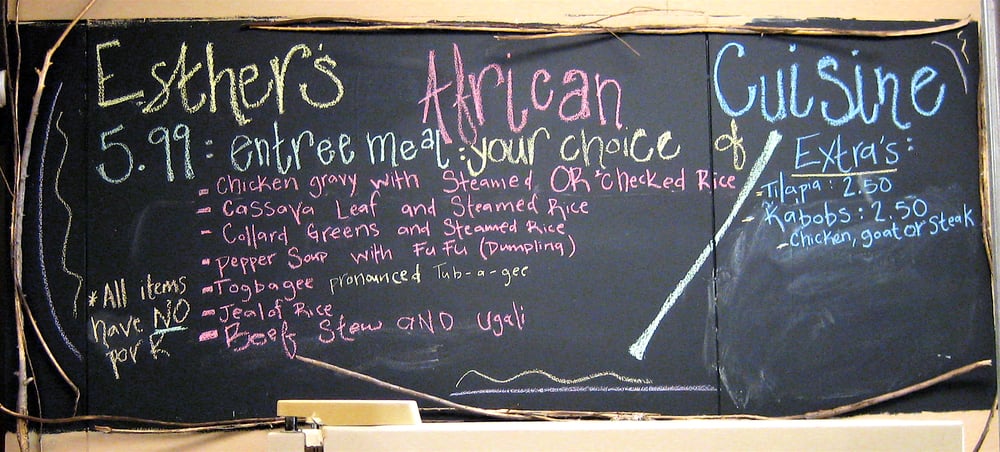 Esther's African Cuisine
5.99: entree meal: your choice of
- Chicken gravy with Steamed OR *checked Rice
- Cassava Leaf and Steamed Rice
- Collard Greens and Steamed Rice
- Pepper Soup with FuFu (Dumpling)
- Togbagee pronounced Tub-a-gee
- Jealof Rice
- Beef Stew AND Ugali
*All items
have NO
porK
Extra's:
- Tilapia: 2.50
- Kabobs: 2.50
- Chicken, goat or Steak